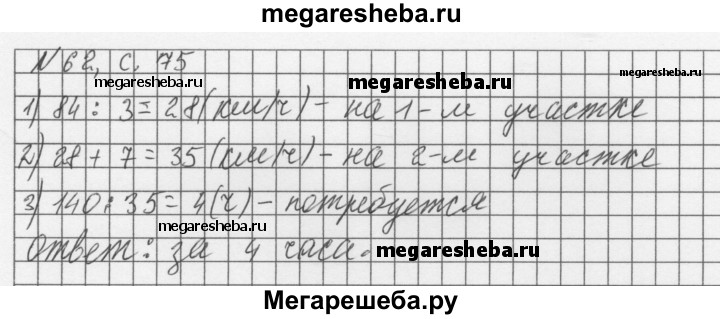 megaresheba.ru
№ 62, с. 75
megaresheba.ru
megaresheba.ru
1) 84 : 3 = 28 (км/ч) - на 1-м участке
2) 28 + 7 = 35 (км/ч) - на 2-м участке
3) 140 : 35 = 4 (ч) - потребуется
megaresheba.ru
Ответ: за 4 часа.
megaresheba.ru
Мегарешеба.ру